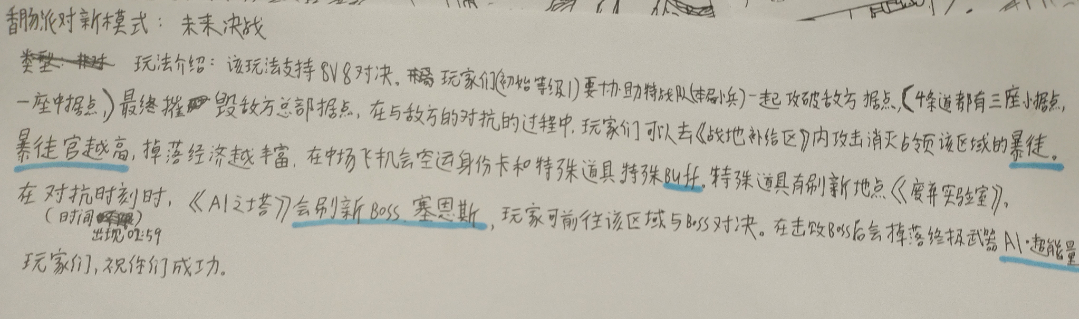 香肠派对新模式：未来决战
玩法介绍：该玩法支持8V8对决。玩家们(初始等级1)要协助特战队(本局小兵)一起攻破敌方据点,(4条道都有三座小据点,
一座中据点,)最终摧毁敌方总部据点，在与敌方的对抗的过程中，玩家们可以去《战地补给区》内攻击消灭占领该区域的暴徒。
暴徒官越高，掉落经济越丰富，在中场飞机会空运身份卡和特殊道具特殊Buff。特殊道具有刷新地点《废弃实验室》。
在对抗时刻时，《AI之塔》会刷新Boss塞恩斯，玩家可前往该区域与Boss对决。在击败Boss后会掉落终极武器AI·超能量
(时间
出现02:59
玩家们，祝你们成功。